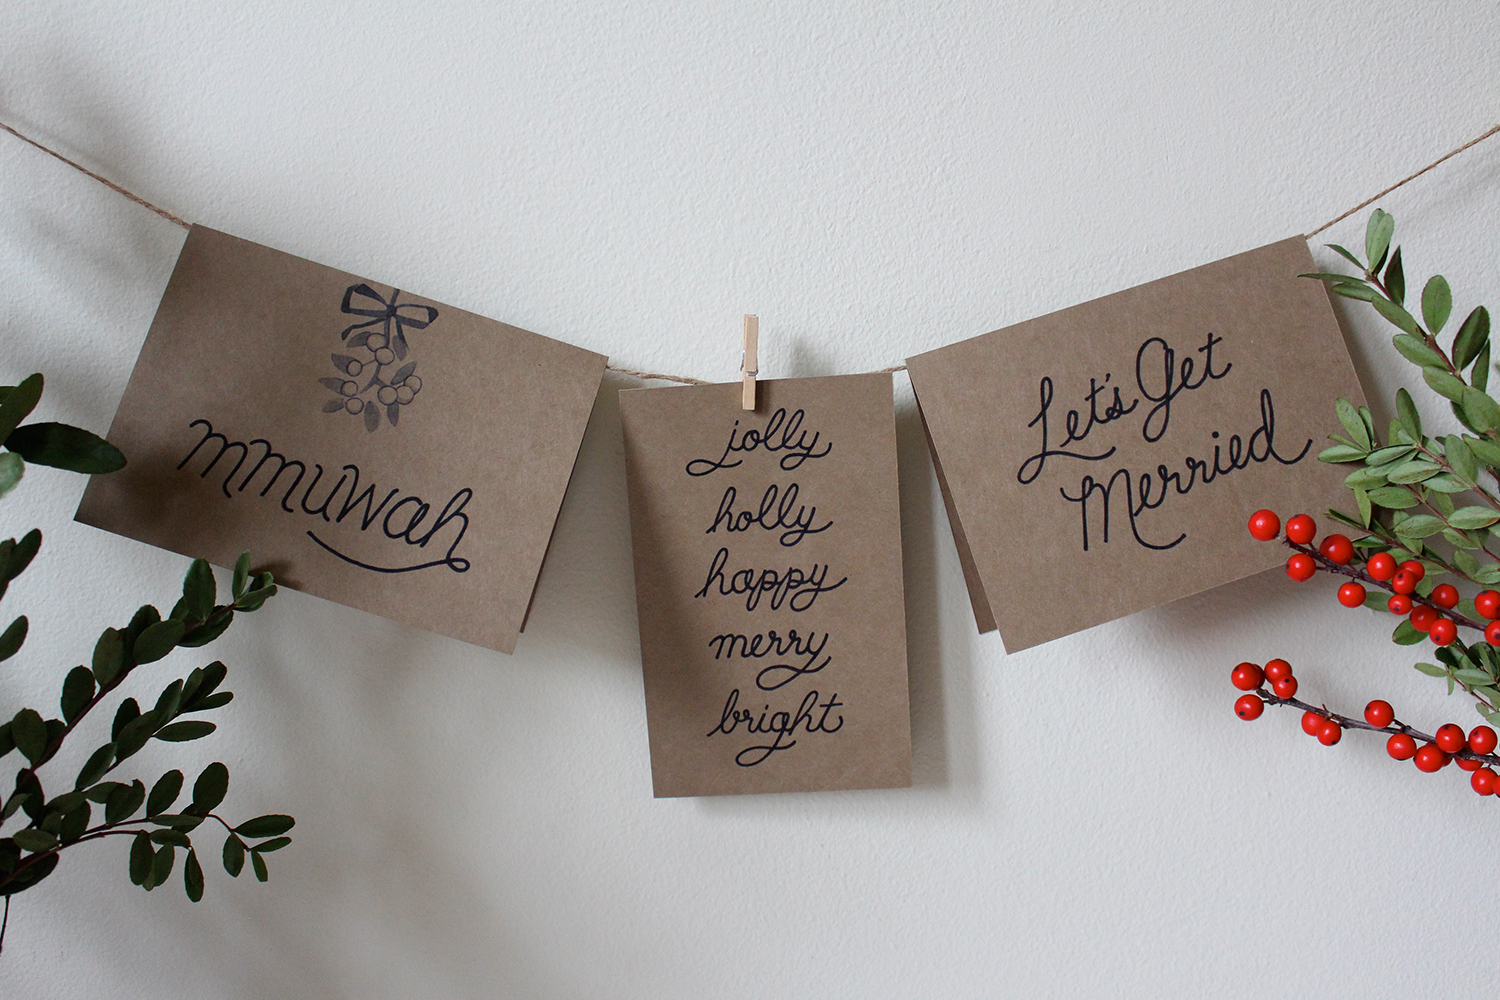 mmuwah
jolly
holly
happy
merry
bright
Let's Get
Merried